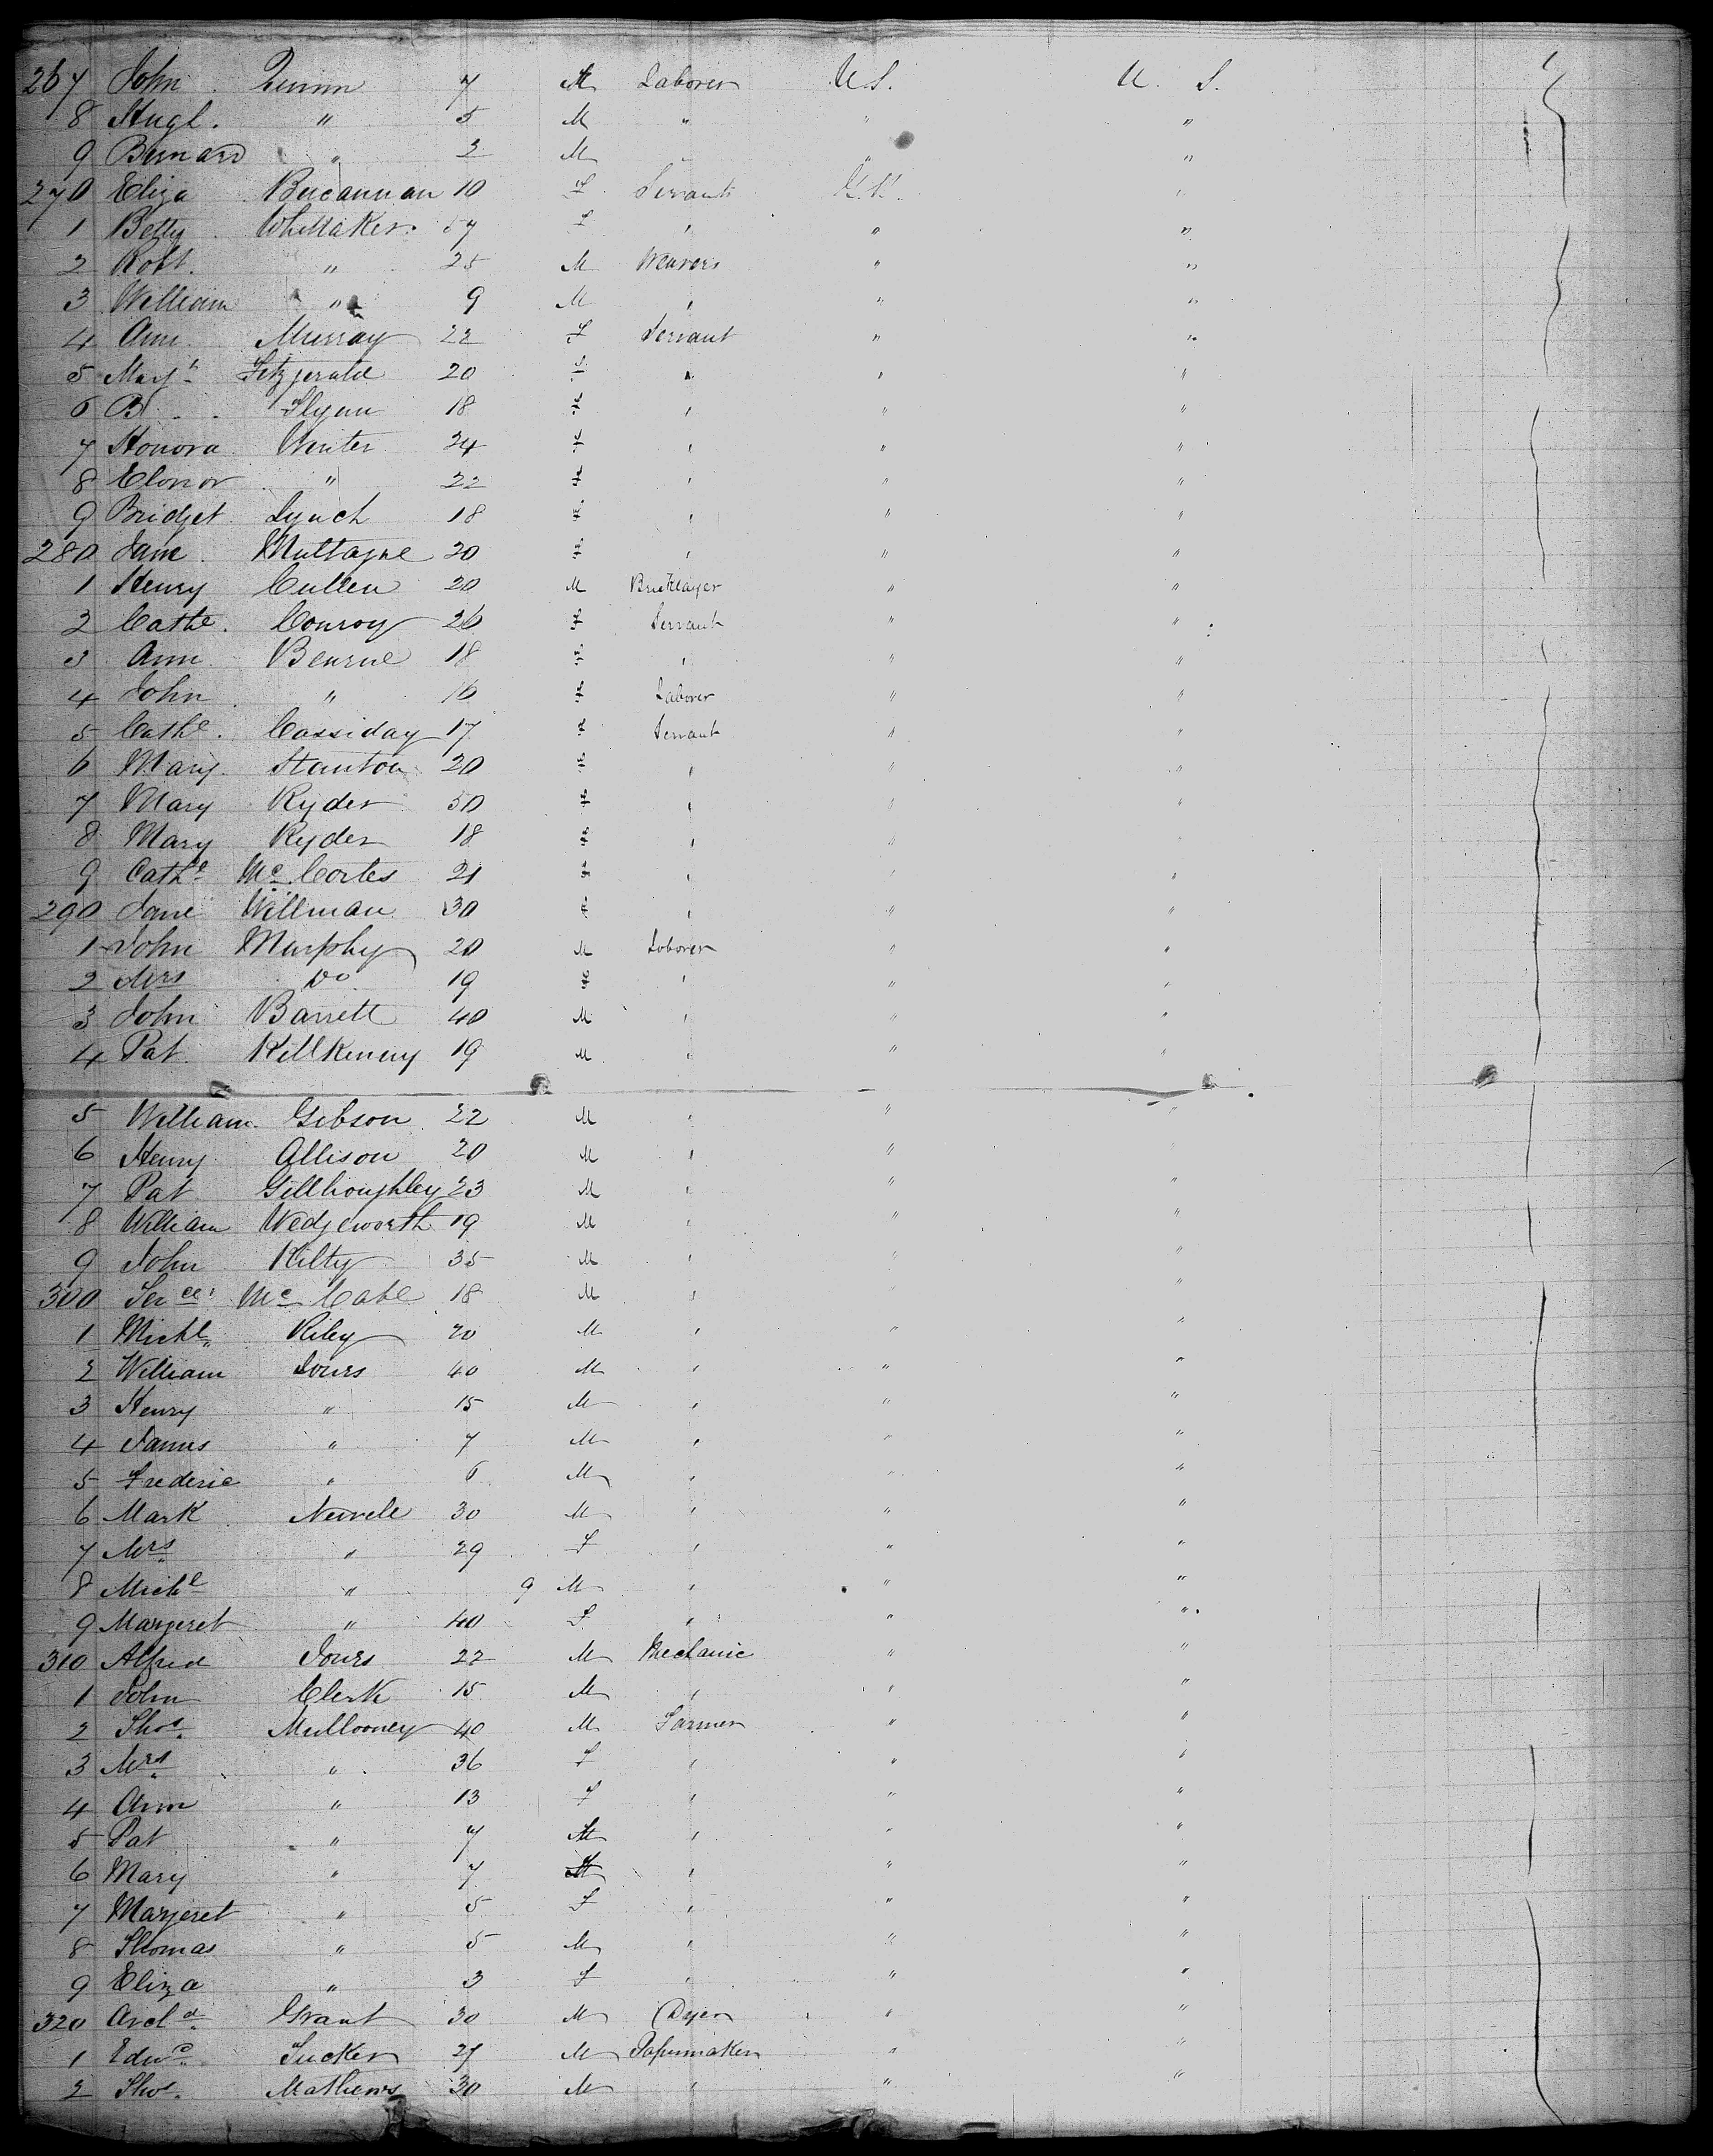 267 John Quinn 7 M Laborer U.S. U. S.
8 Hugh " 5 M " " "
9 Bernard " 2 M " " "
270 Eliza Bucannan 10 f Servants "
1 Betty Whittaker 57 f " " "
2 Robt. " 25 M Weavers " "
3 William " 9 M " " "
4 Ann Murray 22 f Servant " "
5 Fitzgerald 20 f " " "
6 B. Flynn 18 f " " "
7 Honora Winter 24 f " " "
8 Elonor " 22 f " " "
9 Bridget Lynch 18 f " " "
280 Jane 20 f " " "
1 Henry Cullen 20 M Bricklayer " "
2 Cathe. Conroy 26 f Servant " "
3 Ann Bearne 18 f " " "
4 John " 16 f Laborer " "
5 Cathe. Cassiday 17 f Servant " "
6 Mary Stanton 20 f " " "
7 Mary Ryder 50 f " " "
8 Mary Ryder 18 f " " "
9 Cathe. 21 f " " "
290 Jane Willman 30 f " " "
1 John Murphy 20 M Laborer " "
2 Mrs Do 19 f " " "
3 John Barrett 40 M " " "
4 Pat Killkenny 19 M " " "
5 William Gibson 22 M " " "
6 Henry Allison 20 M " " "
7 Pat Gillhoughley 23 M " " "
8 William Wedgeworth 19 M " " "
9 John Kilty 35 M " " "
300 Mc Cabe 18 M " "
1 Michl. Riley 20 M " " "
2 William Jones 40 M " " "
3 Henry " 15 M " " "
4 James " 7 M " " "
5 Frederic " 6 M " " "
6 Mark 30 M " " "
7 Mrs " 29 f " " "
8 Michl " 9 M " " "
9 Margeret " 40 f " " "
310 Alfred Jones 22 M Mechanic " "
1 John Clerk 15 M " " "
2 Thos. Mullooney 40 M Farmer " "
3 Mrs " 36 f " " "
4 Ann " 13 f " " "
5 Pat " 7 M " " "
6 Mary " 7 " " "
7 Margeret " 5 f " " "
8 Thomas " 5 M " " "
9 Eliza " 3 f " " "
320 Archd. Grant 30 M Dyer " "
1 Edwd. Tucker 27 M Papermaker " "
2 Thos. Mathews 30 M " " "